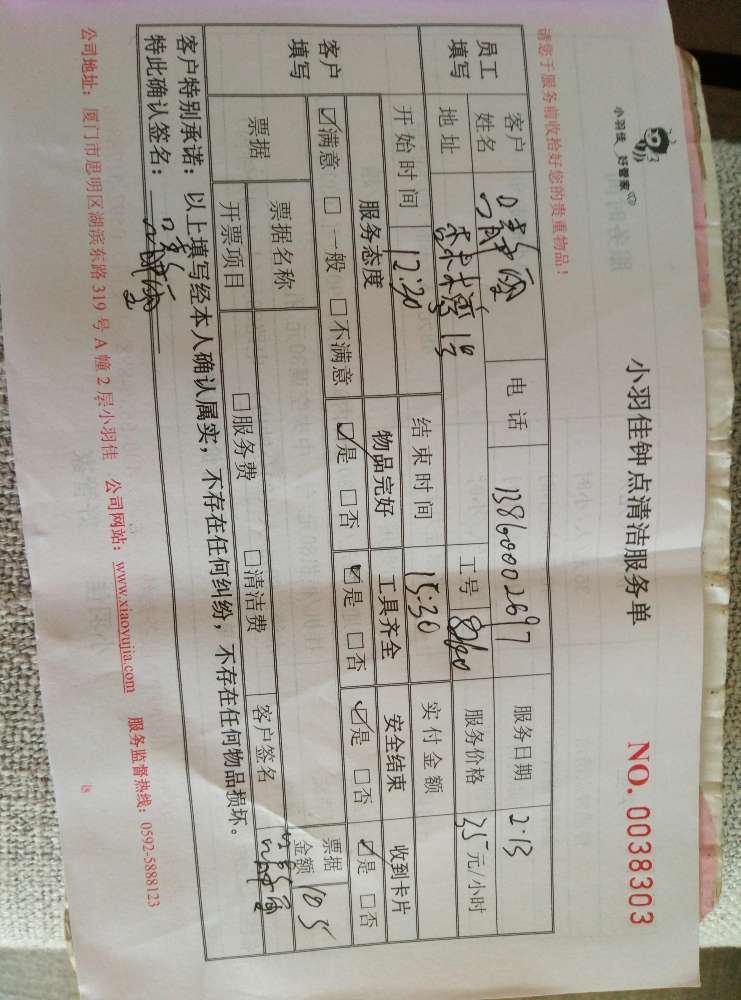 小羽佳 好管家
小羽佳钟点清洁服务单
NO. 0038303
请您于服务前收拾好您的贵重物品！
员工填写
客户姓名
电话 13860002697
服务日期 2.13
地址
工号 8160
服务价格 35元/小时
开始时间 12:30
结束时间 15:30
实付金额
客户填写
服务态度 物品完好 工具齐全 安全结束 收到卡片
☑满意 □一般 □不满意 ☑是 □否 ☑是 □否 ☑是 □否 ☑是 □否
票据
票据名称
票据金额 105
开票项目 □服务费 □清洁费
客户签名
客户特别承诺：以上填写经本人确认属实，不存在任何纠纷，不存在任何物品损坏。
特此确认签名：
公司地址：厦门市思明区湖滨东路 319 号 A 幢 2 层小羽佳 公司网站：www.xiaoyujia.com 服务监督热线：0592-5888123